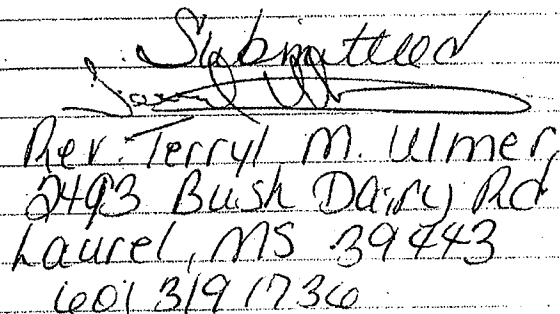 Submitted
Rev. Terryl M. Ulmer
2493 Bush Dairy Rd
Laurel, MS 39443
601 319 1736